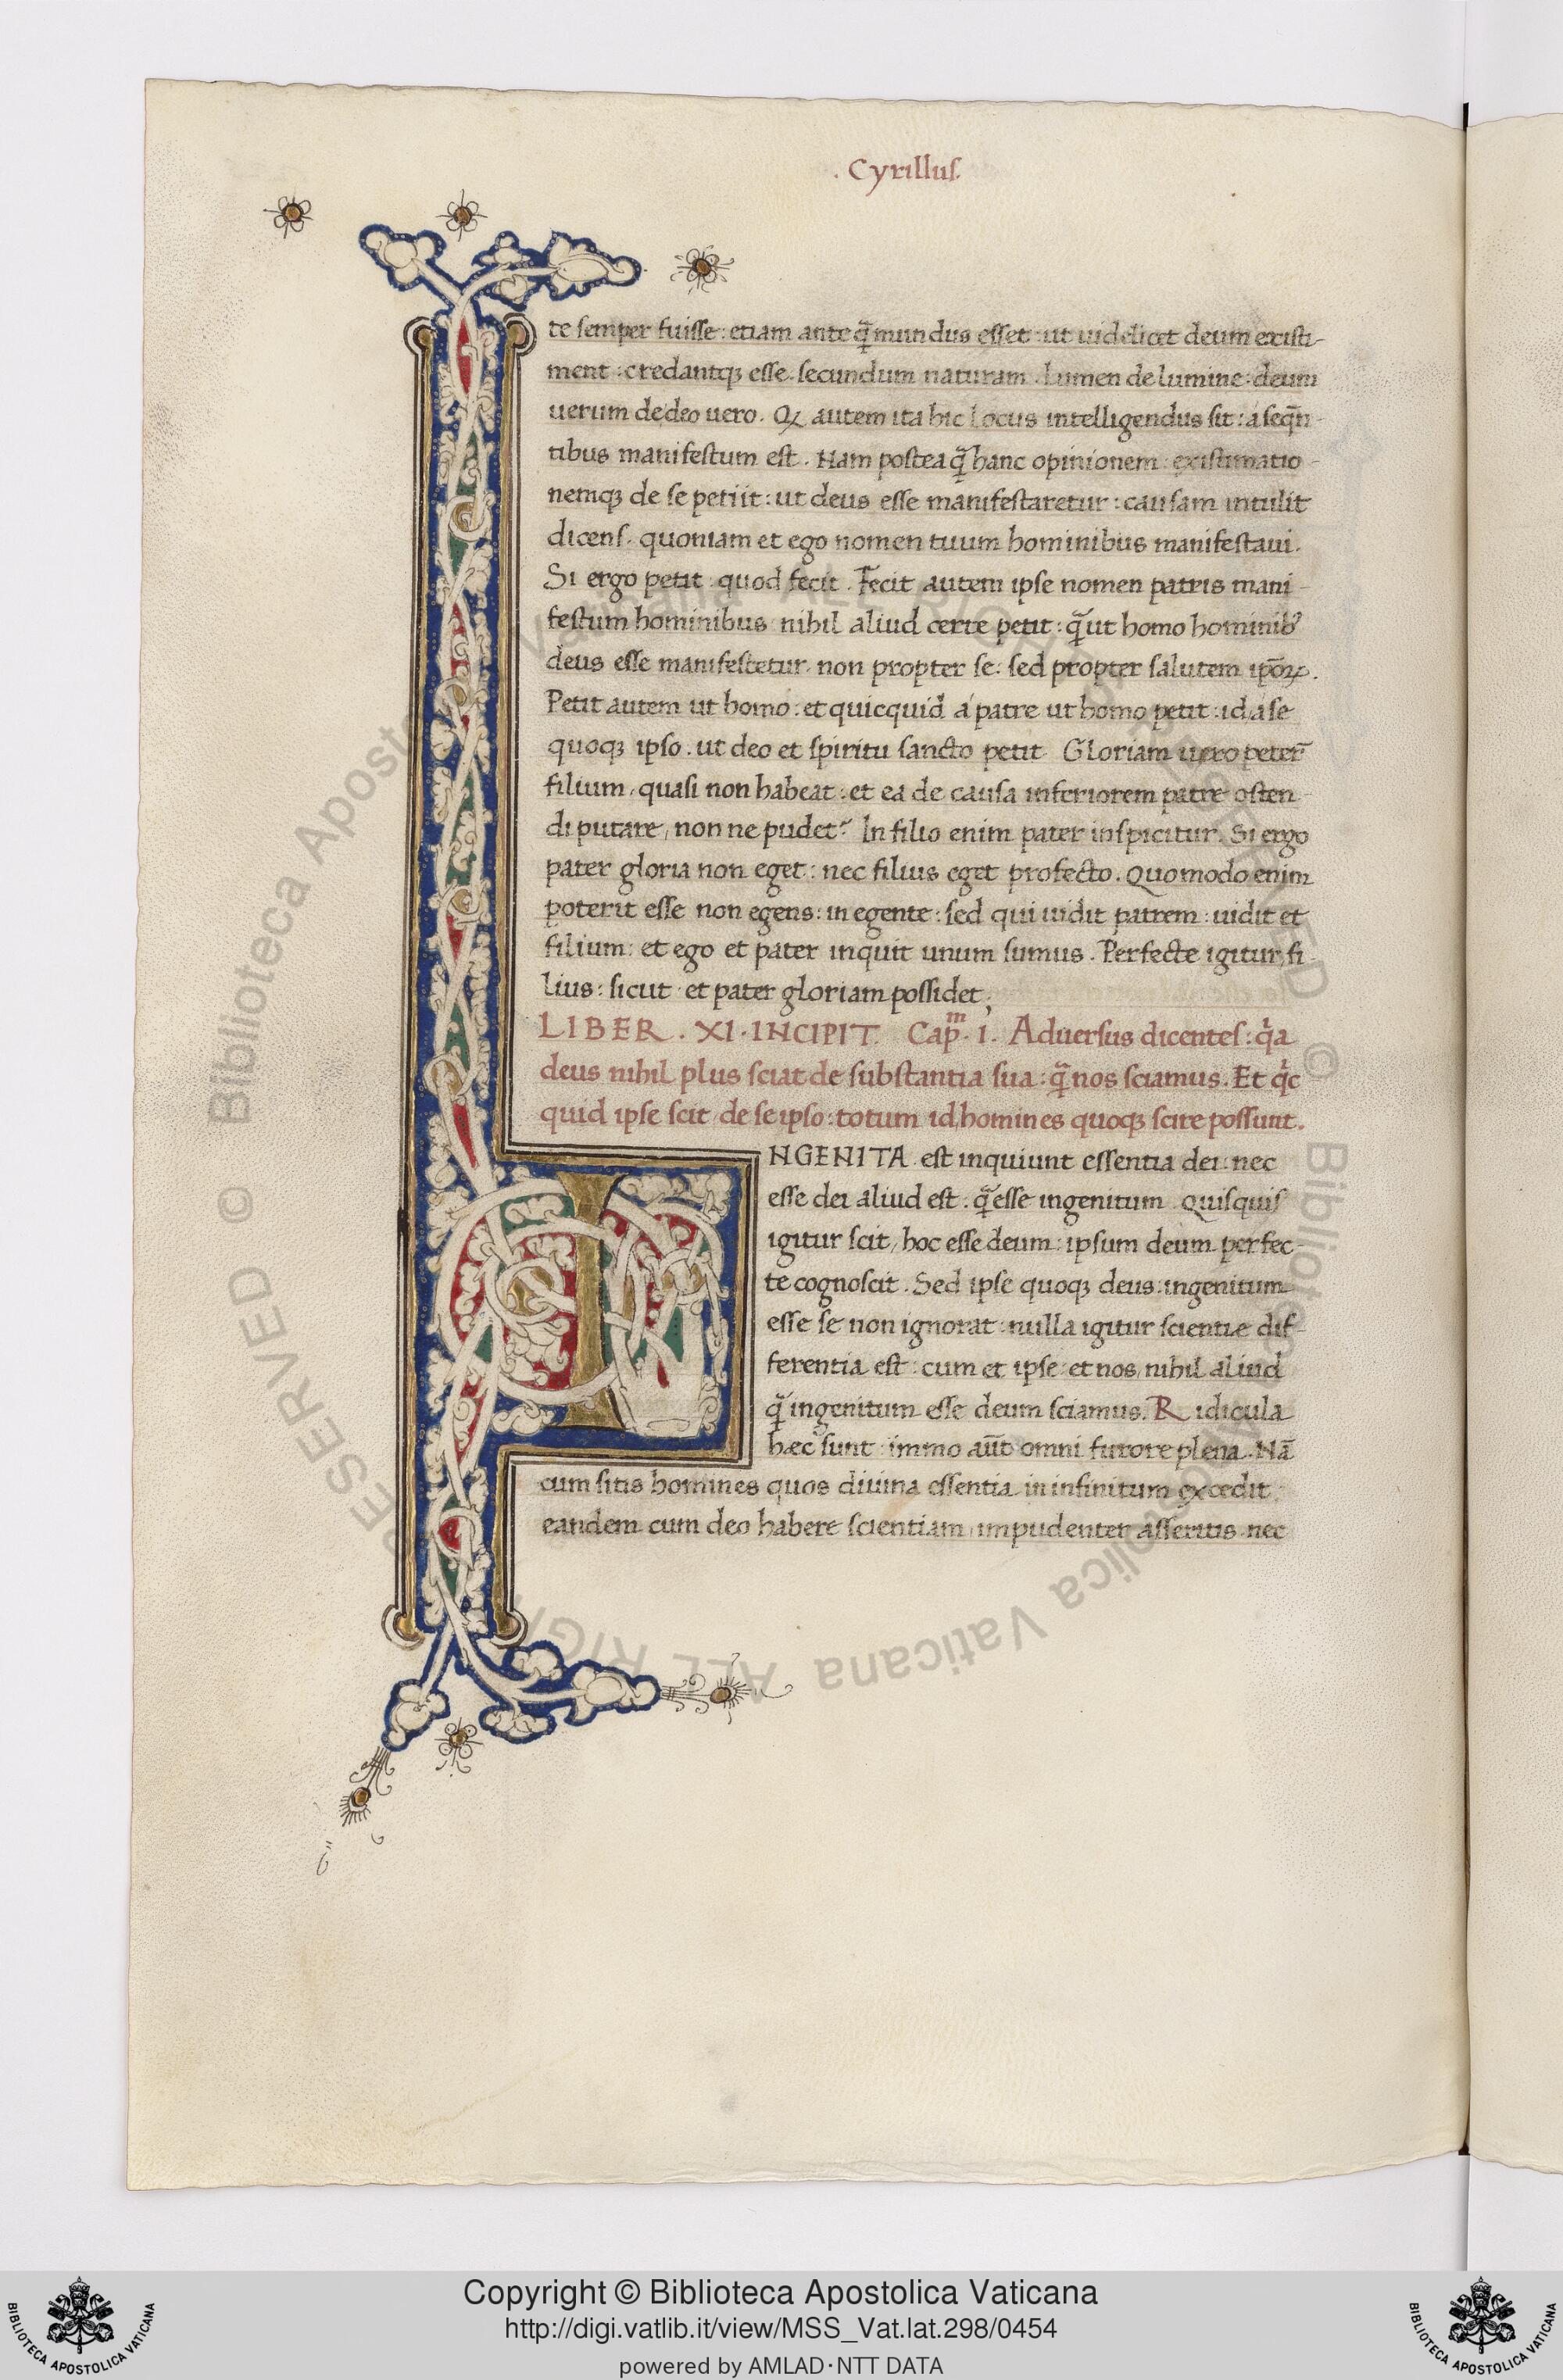 . Cyrillus.
te semper fuisse : etiam ante q̃ mundus esset : ut uidelicet deum existi-
ment : credantq; esse secundum naturam . Lumen de lumine : deum
uerum de deo uero . Qꝫ autem ita hic locus intelligendus sit : a seq̄n-
tibus manifestum est . Nam postea q̃ hanc opinionem : existimatio-
nemq; de se petiit : ut deus esse manifestaretur : causam intulit
dicens . quoniam et ego nomen tuum hominibus manifestaui .
Si ergo petit quod fecit . Fecit autem ipse nomen patris mani-
festum hominibus nihil aliud certe petit : q̃ ut homo hominib9
deus esse manifestetur . non propter se : sed propter salutem ip̄oꝝ .
Petit autem ut homo : et quicquid á patre ut homo petit : id a se
quoq; ipso . ut deo et spiritu sancto petit . Gloriam uero peter̄
filium , quasi non habeat : et ea de causa inferiorem patre osten-
di putare , non ne pudet ? In filio enim pater inspicitur . Si ergo
pater gloria non eget : nec filius eget profecto . Quomodo enim
poterit esse non egens : in egente : sed qui uidit patrem : uidit et
filium : et ego et pater inquit unum sumus . Perfecte igitur fi-
lius : sicut et pater gloriam possidet ;
LIBER . XI . INCIPIT . Cap.m i . Aduersus dicentes : qͥa
deus nihil plus sciat de substantia sua : q̃ nos sciamus . Et qͥc
quid ipse scit de se ipso : totum id homines quoq; scire possunt .
INGENITA est inquiunt essentia dei : nec
esse dei aliud est : q̃ esse ingenitum . Quisquis
igitur scit , hoc esse deum : ipsum deum perfec-
te cognoscit . Sed ipse quoq; deus : ingenitum
esse se non ignorat : nulla igitur scientiæ dif-
ferentia est : cum et ipse : et nos , nihil aliud
q̃ ingenitum esse deum sciamus . Ridicula
hæc sunt : immo aūt omni furore plena . Nā
cum sitis homines quos diuina essentia in infinitum excedit :
eandem cum deo habere scientiam , impudenter asseritis . nec
© Biblioteca Apostolica Vaticana ALL RIGHTS RESERVED
Copyright © Biblioteca Apostolica Vaticana
http://digi.vatlib.it/view/MSS_Vat.lat.298/0454
powered by AMLAD·NTT DATA
BIBLIOTECA APOSTOLICA VATICANA
BIBLIOTECA APOSTOLICA VATICANA